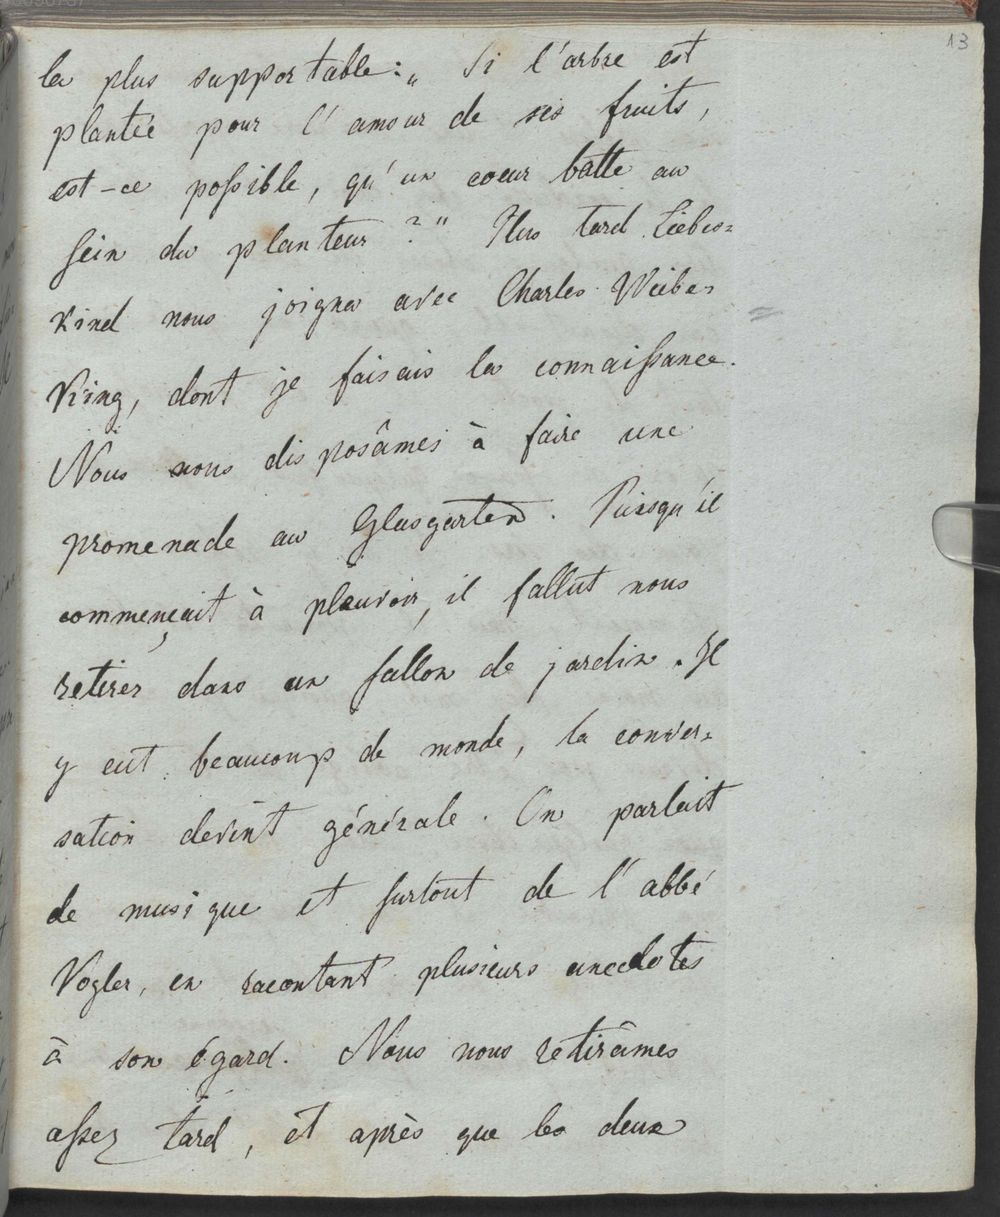 13
la plus supportable: „Si l'arbre est
plantéé pour l'amour de ses fruits,
est-ce possible, qu'un coeur batte au
sein du planteur?" Plus tard Liebes=
kind nous joigna avec Charles Wiebe=
king, dont je faisais la connaissance.
Nous nous disposâmes à faire une
promenade au Glasgarten. Puisqu'il
commençait à pleuvoir, il fallut nous
retirer dans un sallon de jardin. Il
y eut beaucoup de monde, la conver=
sation devint générale. On parlait
de musique et surtout de l'abbé
Vogler, en racontant plusieurs anecdotes
à son égard. Nous nous retirâmes
assez tard, et après que les deux